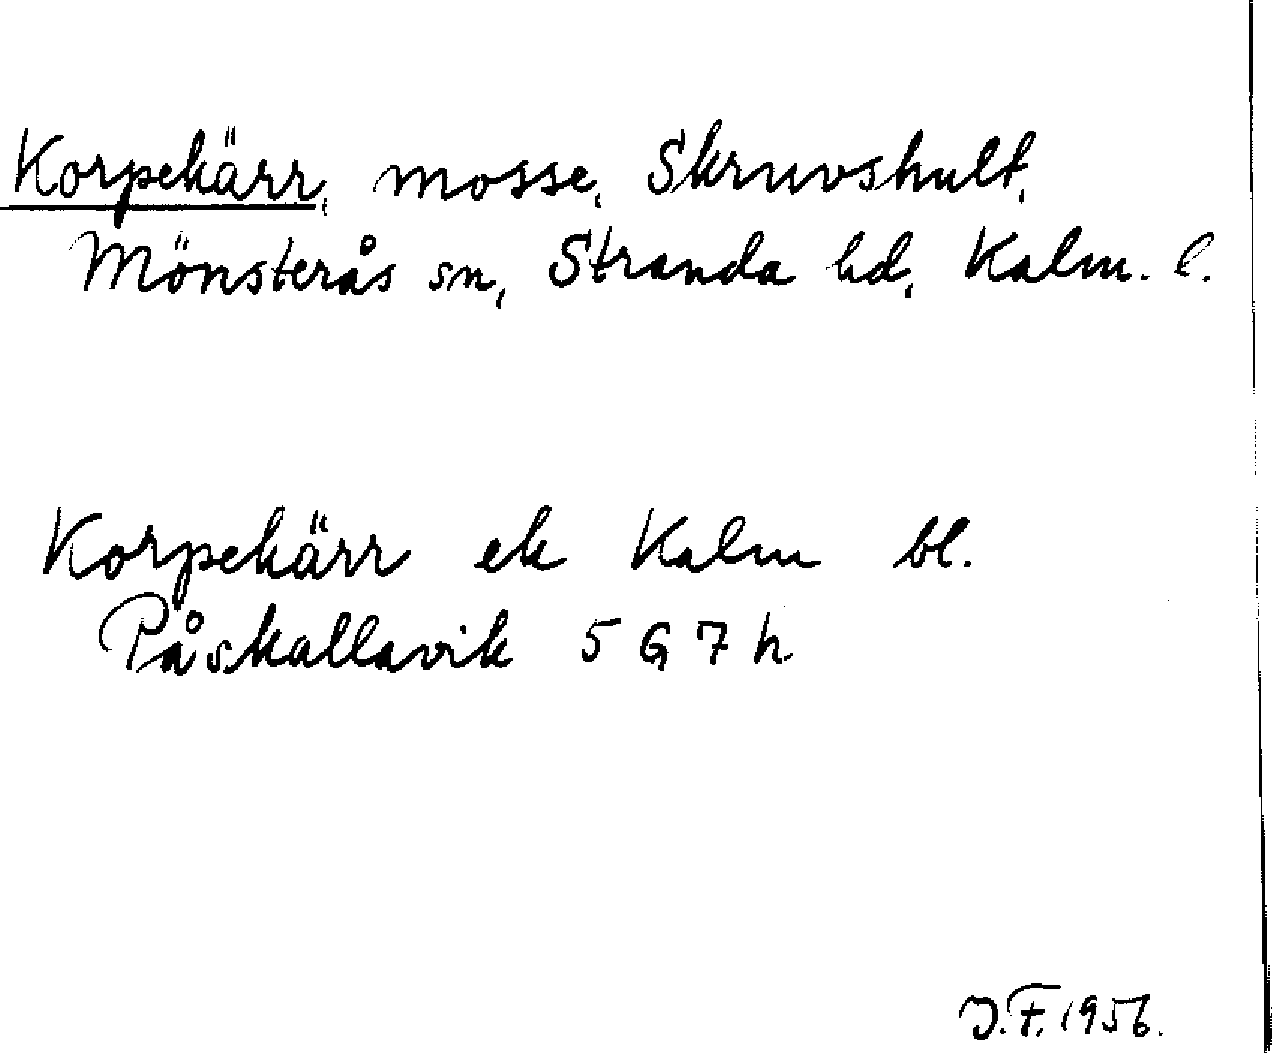 Korpekärr, mosse, Skruvshult,
Mönsterås sn, Stranda hd, Kalm. l.
Korpekärr ek Kalm bl.
Påskallavik 5 G 7 h
J.F. 1956.